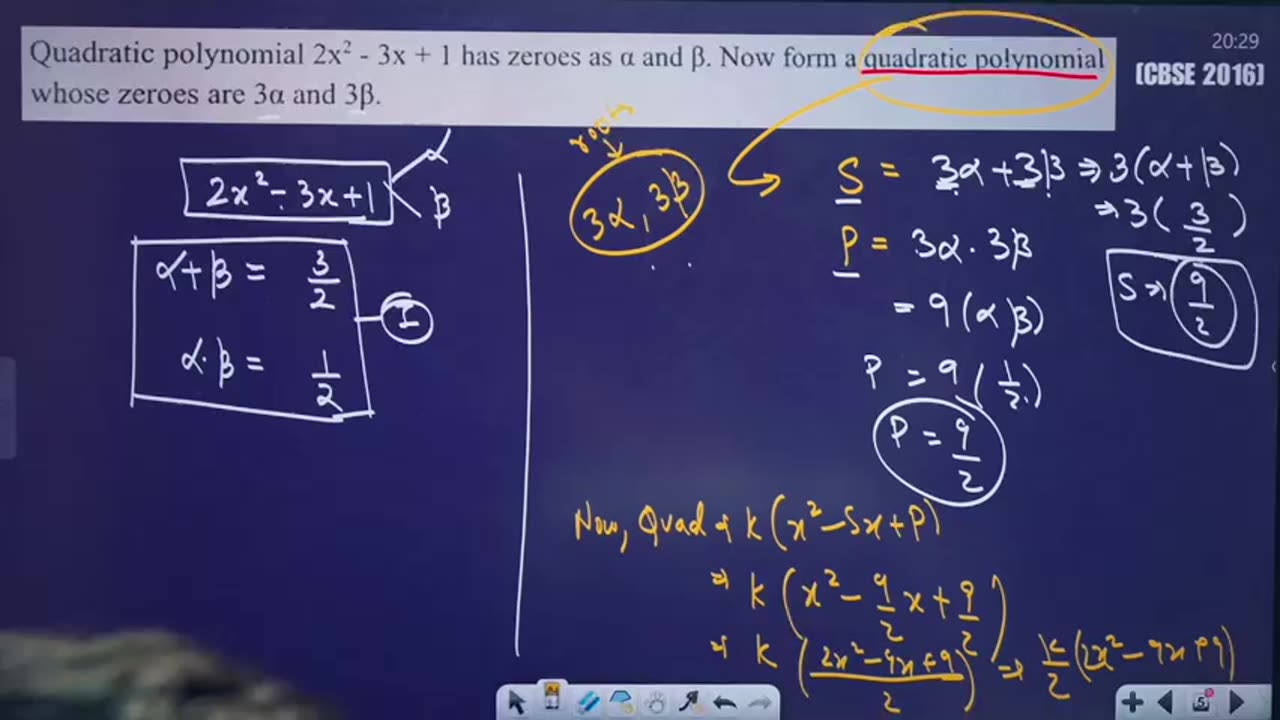 20:29
Quadratic polynomial 2x² - 3x + 1 has zeroes as α and β. Now form a quadratic polynomial
whose zeroes are 3α and 3β.
[CBSE 2016]
2x² - 3x + 1
α
β
α + β = 3/2
α · β = 1/2
I
roots
3α, 3β
S = 3α + 3β ⇒ 3(α + β)
⇒ 3(3/2)
S ⇒ 9/2
P = 3α · 3β
= 9(αβ)
P = 9(1/2)
P = 9/2
Now, Quad k(x² - Sx + P)
⇒ k(x² - 9/2 x + 9/2)
⇒ k((2x² - 9x + 9)/2) ⇒ k/2(2x² - 9x + 9)
5